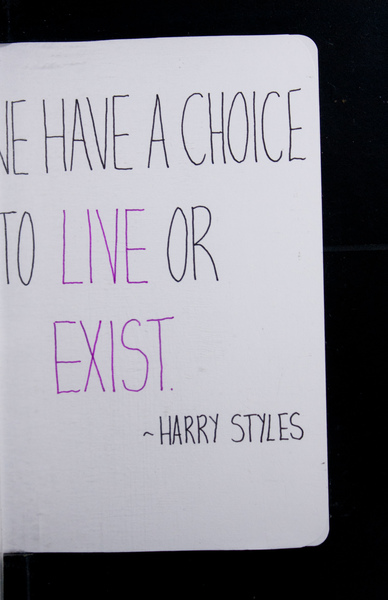 WE HAVE A CHOICE
TO LIVE OR
EXIST.
~HARRY STYLES